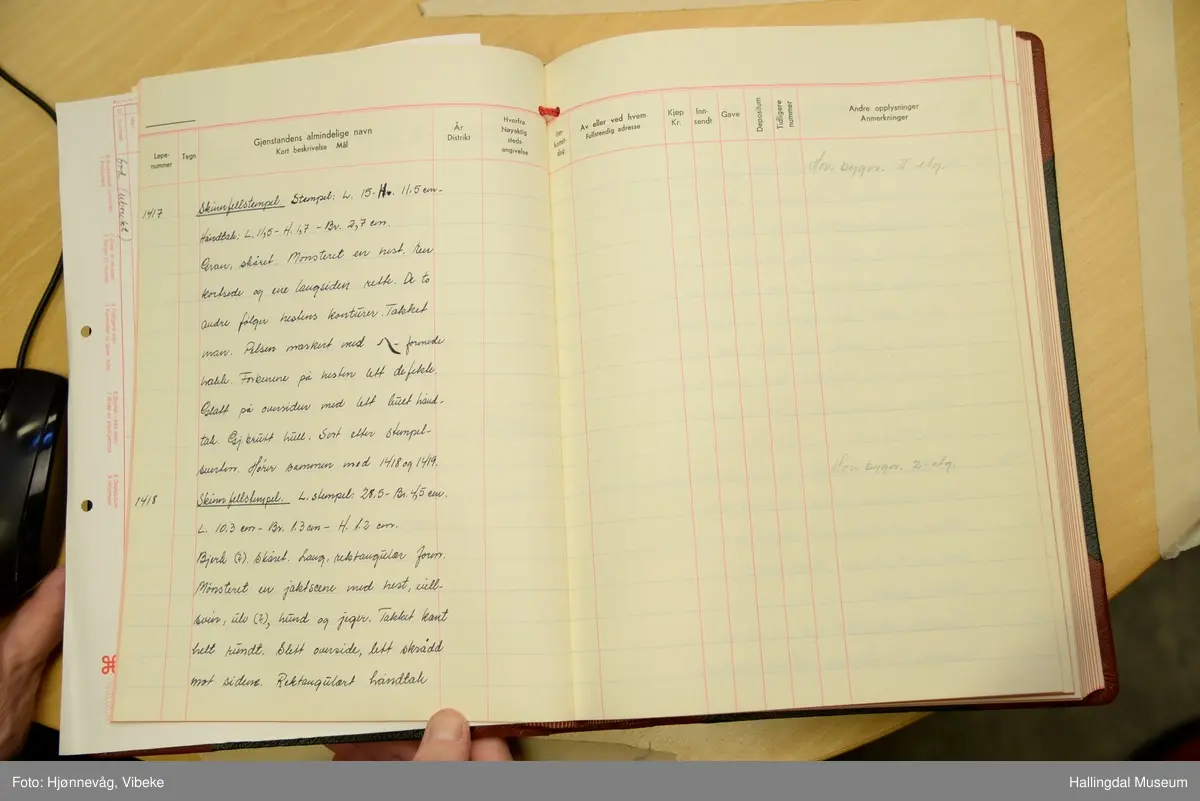 Løpe-
nummer
Tegn
Gjenstandens almindelige navn
Kort beskrivelse Mål
År
Distrikt
Hvorfra
Nøyaktig
steds-
angivelse
Av eller ved hvem
Fullstendig adresse
Kjøp
Kr.
Inn-
sendt
Gave
Depositum
Tidligere
nummer
Andre opplysninger
Anmerkninger
1417
Skinnfellstempel Stempel: L. 15- H. 11.5 cm-
Håndtak: L. 11,5- H. 1,7 - Br. 2,7 cm.
Gran, skåret. Mønsteret en hest. Een
kortside og ene langsiden rette. De to
andre følger hestens konturer. Takket
man. Pelsen markert med - formede
hakk. Forbenene på hesten lett defekte.
Glatt på oversiden med lett buet hånd-
tak. Gj.brutt hull. Sort etter stempel-
sverten. Hører sammen med 1418 og 1419.
1418
Skinnfellstempel. L. stempel: 28.5- Br. 4,5 cm.
L. 10.3 cm- Br. 1.3 cm- H. 1.2 cm.
Bjerk (?). Skåret. Lang, rektangulær form.
Mønsteret en jaktscene med hest, vill-
svin, ulv (?), hund og jeger. Takket kant
helt rundt. Slett overside, lett skrådd
mot sidene. Rektangulært håndtak
Hov. bygn. II etg.
Hov. bygn. 2. etg.
Foto: Hjønnevåg, Vibeke
Hallingdal Museum